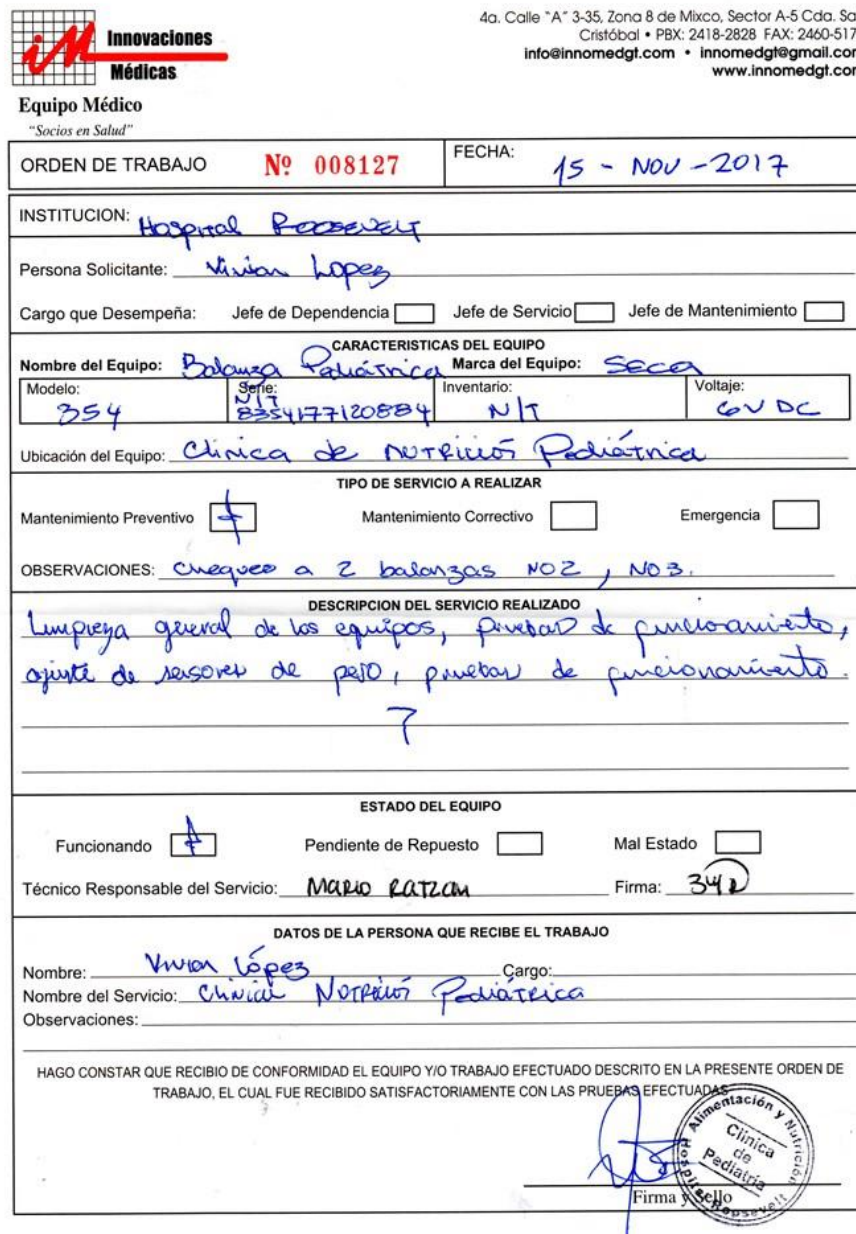 iM Innovaciones
Médicas
Equipo Médico
"Socios en Salud"
4a. Calle "A" 3-35, Zona 8 de Mixco, Sector A-5 Cda. Sa
Cristóbal • PBX: 2418-2828 FAX: 2460-517
info@innomedgt.com • innomedgt@gmail.cor
www.innomedgt.cor
ORDEN DE TRABAJO Nº 008127 FECHA: 15 - NOV - 2017
INSTITUCION: Hospital Roosevelt
Persona Solicitante: Vivian Lopez
Cargo que Desempeña: Jefe de Dependencia Jefe de Servicio Jefe de Mantenimiento
CARACTERISTICAS DEL EQUIPO
Nombre del Equipo: Balanza Pediátrica Marca del Equipo: Seca
Modelo: Serie: Inventario: Voltaje:
354 N/T 8354177120884 N/T 6V DC
Ubicación del Equipo: Clinica de Nutrición Pediátrica
TIPO DE SERVICIO A REALIZAR
Mantenimiento Preventivo Mantenimiento Correctivo Emergencia
OBSERVACIONES: Chequeo a 2 balanzas NO2, NO3.
DESCRIPCION DEL SERVICIO REALIZADO
Limpieza general de los equipos, pruebas de funcionamiento,
ajuste de sensores de peso, pruebas de funcionamiento.
ESTADO DEL EQUIPO
Funcionando Pendiente de Repuesto Mal Estado
Técnico Responsable del Servicio: Mario Ratzan Firma:
DATOS DE LA PERSONA QUE RECIBE EL TRABAJO
Nombre: Vivian López Cargo:
Nombre del Servicio: Clinica Nutrición Pediátrica
Observaciones:
HAGO CONSTAR QUE RECIBIO DE CONFORMIDAD EL EQUIPO Y/O TRABAJO EFECTUADO DESCRITO EN LA PRESENTE ORDEN DE
TRABAJO, EL CUAL FUE RECIBIDO SATISFACTORIAMENTE CON LAS PRUEBAS EFECTUADAS
Alimentación y Nutrición
Clínica
de
Pediatría
Hospital Roosevelt
Firma y Sello